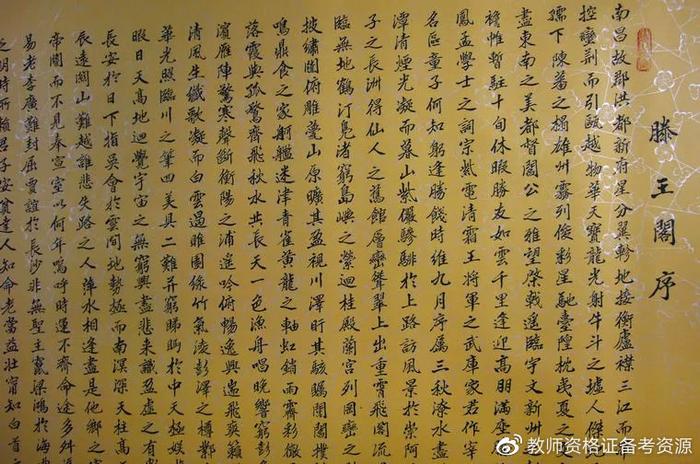 滕王閣序
南昌故郡洪都新府星分翼軫地接衡廬襟三江而
控蠻荆而引甌越物華天寶龍光射牛斗之墟人傑
孺下陳蕃之榻雄州霧列俊彩星馳臺隍枕夷夏之
盡東南之美都督閻公之雅望棨戟遥臨宇文新州
襜帷暫駐十旬休暇勝友如雲千里逢迎高朋滿座
鳳孟學士之詞宗紫電清霜王將軍之武庫家君作宰
名區童子何知躬逢勝餞時維九月序屬三秋潦水盡
潭清煙光凝而暮山紫儼驂騑於上路訪風景於崇阿
子之長洲得仙人之舊館層巒聳翠上出重霄飛閣流
臨無地鶴汀鳧渚窮島嶼之縈迴桂殿蘭宮列岡巒之
披繡闥俯雕甍山原曠其盈視川澤盱其駭矚閭閻撲
鳴鼎食之家舸艦迷津青雀黃龍之軸虹銷雨霽彩徹
落霞與孤鶩齊飛秋水共長天一色漁舟唱晚響窮彭
濱雁陣驚寒聲斷衡陽之浦遥吟俯暢逸興遄飛爽籟
清風生纖歌凝而白雲遏睢園綠竹氣凌彭澤之樽鄴
華光照臨川之筆四美具二難并窮睇眄於中天極娛
暇日天高地迥覺宇宙之無窮興盡悲來識盈虛之有
長安於日下指吳會於雲間地勢極而南溟深天柱高
辰遠關山難越誰悲失路之人萍水相逢盡是他鄉之
帝閽而不見奉宣室以何年嗚呼時運不齊命途多舛
易老李廣難封屈賈誼於長沙非無聖主竄梁鴻於海
之明時所賴君子安貧達人知命老當益壯寧知白首
@教师资格证备考资源